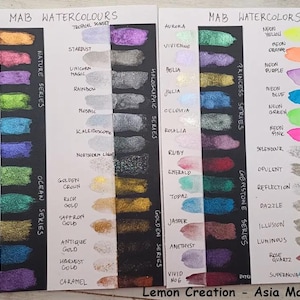 MAB WATERCOLOURS
NATURE SERIES
OCEAN SERIES
STARDUST
UNICORN MAGIC
RAINBOW
MODALI
KALEIDOSCOPE
NORTHERN LIGHT
GOLDEN CROWN
RICH GOLD
SAFFRON GOLD
ANTIQUE GOLD
HARVEST GOLD
CARAMEL
GOLDEN SERIES
MAB WATERCOLORS
AURORA
VIVIENNE
BELLA
JULIA
CELENIA
ROSALIA
RUBY
EMERALD
TOPAZ
JASPER
AMETHYST
VIVID
PRINCESS SERIES
GEMSTONE SERIES
NEON YELLOW
NEON ORANGE
NEON PURPLE
NEON BLUE
NEON GREEN
NEON PINK
SPLENDOUR
OPULENT
REFLECTION
DAZZLE
ILLUSION
LUMINOUS
ROSE QUARTZ
SUPERNOVA
Lemon Creation - Asia Ma